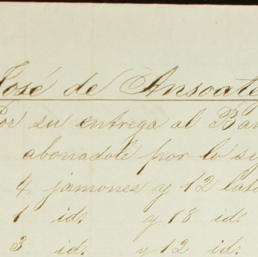 José de Ansoate
Por su entrega al Ban
abonadole por lo si
4 jamones y 12 lata
1 id: y 18 id:
3 id: y 12 id: